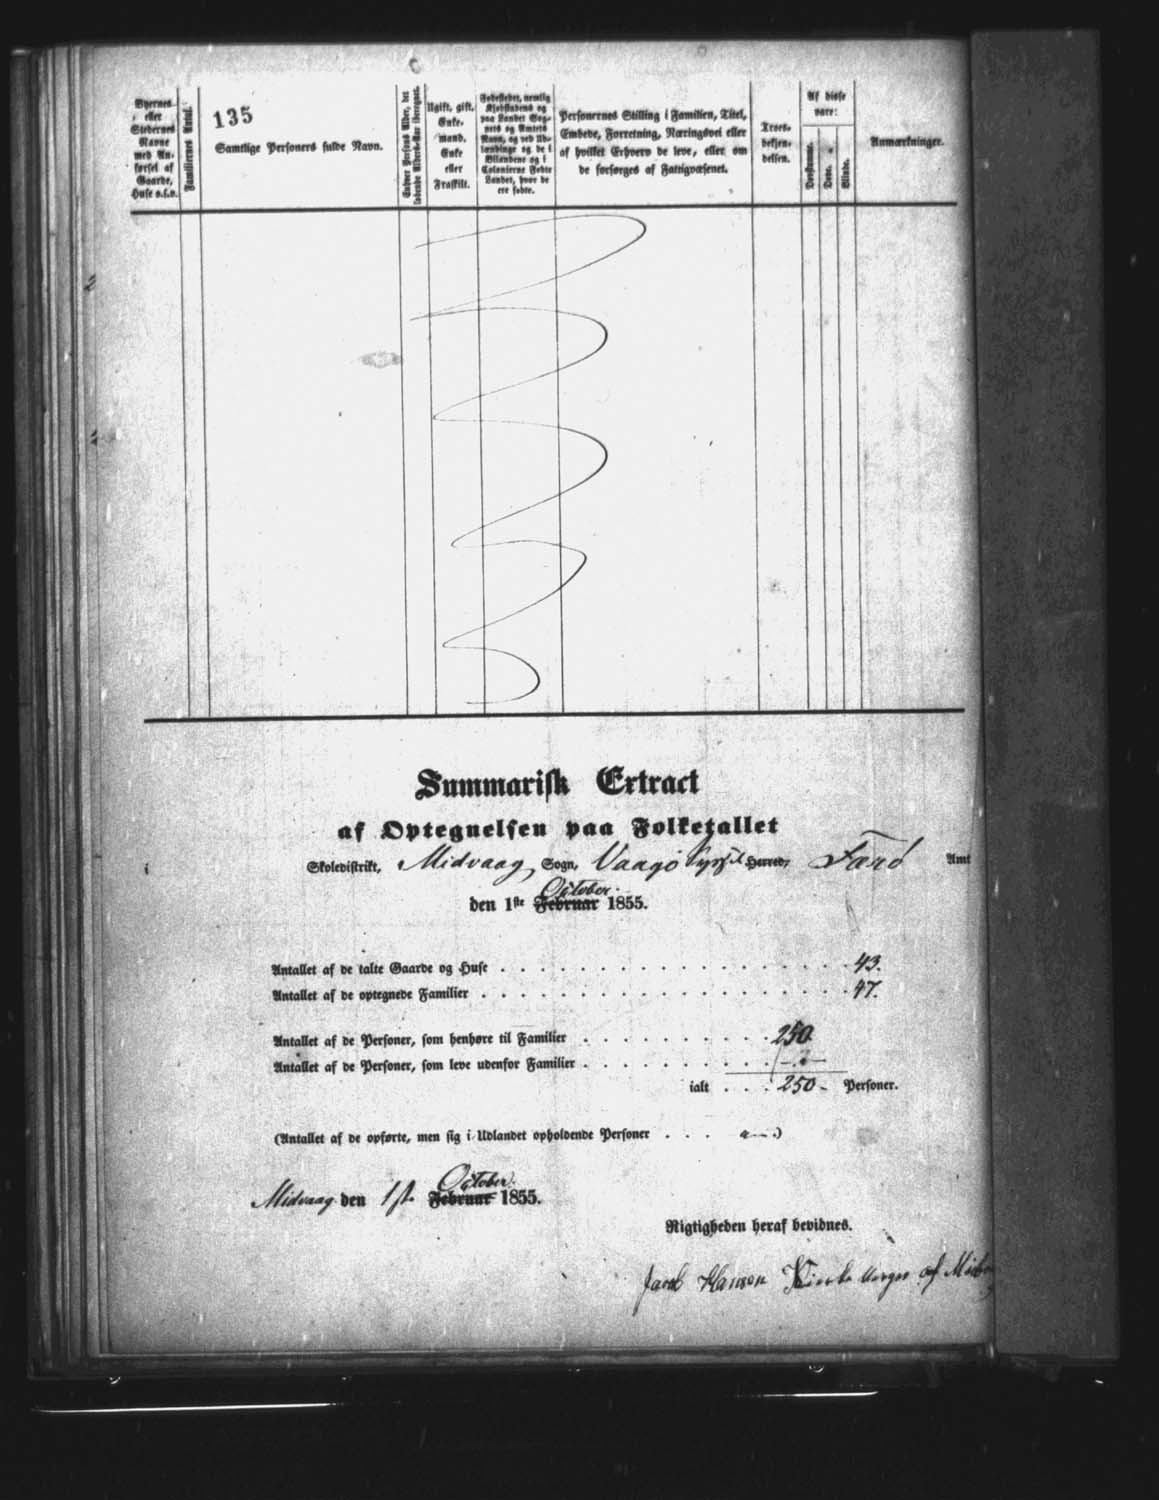 135
Byernes eller Stedernes Navne med Anførsel af Gaarde, Huse o.s.v.
Familiernes Antal.
Samtlige Personers fulde Navn.
Enhver Persons Alder, det løbende Alders-Aar iberegnet.
Ugift, gift, Enkemand, Enke eller Fraskilt.
Fødestedet, nemlig Kjøbstadens og paa Landet Sognets og Amtets Navn, og ved Udlændinge og de i Bilandene og i Colonierne Fødte Landet, hvor de ere fødte.
Personernes Stilling i Familien, Titel, Embede, Forretning, Næringsvei eller af hvilket Erhverv de leve, eller om de forsørges af Fattigvæsenet.
Troesbekjendelsen.
Af disse vare:
Døvstumme.
Døve.
Blinde.
Anmærkninger.
Summarisk Extract
af Optegnelsen paa Folketallet
Skoledistrikt, Midvaag Sogn, Vaagø Syssel Herred, Færø Amt
October
den 1ste Februar 1855.
Antallet af de talte Gaarde og Huse . . . 43.
Antallet af de optegnede Familier . . . 47.
Antallet af de Personer, som henhøre til Familier . . . 250.
Antallet af de Personer, som leve udenfor Familier . . . -
ialt . . . 250 - Personer.
(Antallet af de opførte, men sig i Udlandet opholdende Personer . . . )
October
Midvaag den 1st. Februar 1855.
Rigtigheden heraf bevidnes.
Jacob Hansen Kirke Værge af